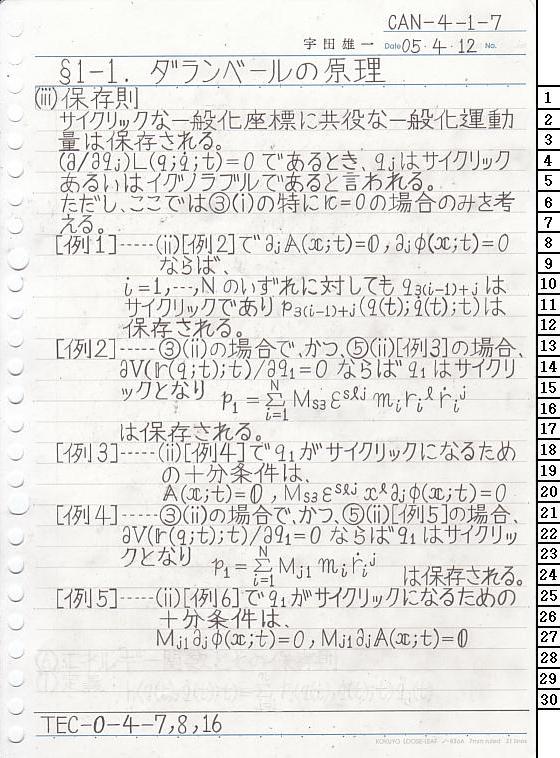 CAN-4-1-7
宇田雄一 Date 05・4・12 No.
§1-1. ダランベールの原理
(iii)保存則
サイクリックな一般化座標に共役な一般化運動
量は保存される。
(∂/∂qj)L(q;q̇;t)=0 であるとき、qjはサイクリック
あるいはイグノラブルであると言われる。
ただし、ここでは③(i)の特にk=0の場合のみを考
える。
[例1]-----(ii)[例2]で∂jA(x;t)=0,∂jφ(x;t)=0
ならば、
i=1,---,Nのいずれに対してもq3(i-1)+jは
サイクリックでありp3(i-1)+j(q(t);q̇(t);t)は
保存される。
[例2]-----③(ii)の場合で、かつ、⑤(ii)[例3]の場合、
∂V(r(q;t);t)/∂q1=0 ならばq1はサイクリ
ックとなり p1=Σ(i=1,N) Ms3 ε^slj mi ri^l ṙi^j
は保存される。
[例3]-----(ii)[例4]でq1がサイクリックになるため
の十分条件は、
A(x;t)=0, Ms3 ε^slj x^l ∂jφ(x;t)=0
[例4]-----③(ii)の場合で、かつ、⑤(ii)[例5]の場合、
∂V(r(q;t);t)/∂q1=0 ならばq1はサイクリッ
クとなり p1=Σ(i=1,N) Mj1 mi ṙi^j は保存される。
[例5]-----(ii)[例6]でq1がサイクリックになるための
十分条件は、
Mj1∂jφ(x;t)=0, Mj1∂jA(x;t)=0
TEC-0-4-7,8,16
KOKUYO LOOSE-LEAF ノ-836A 7mm ruled 31 lines
1
2
3
4
5
6
7
8
9
10
11
12
13
14
15
16
17
18
19
20
21
22
23
24
25
26
27
28
29
30